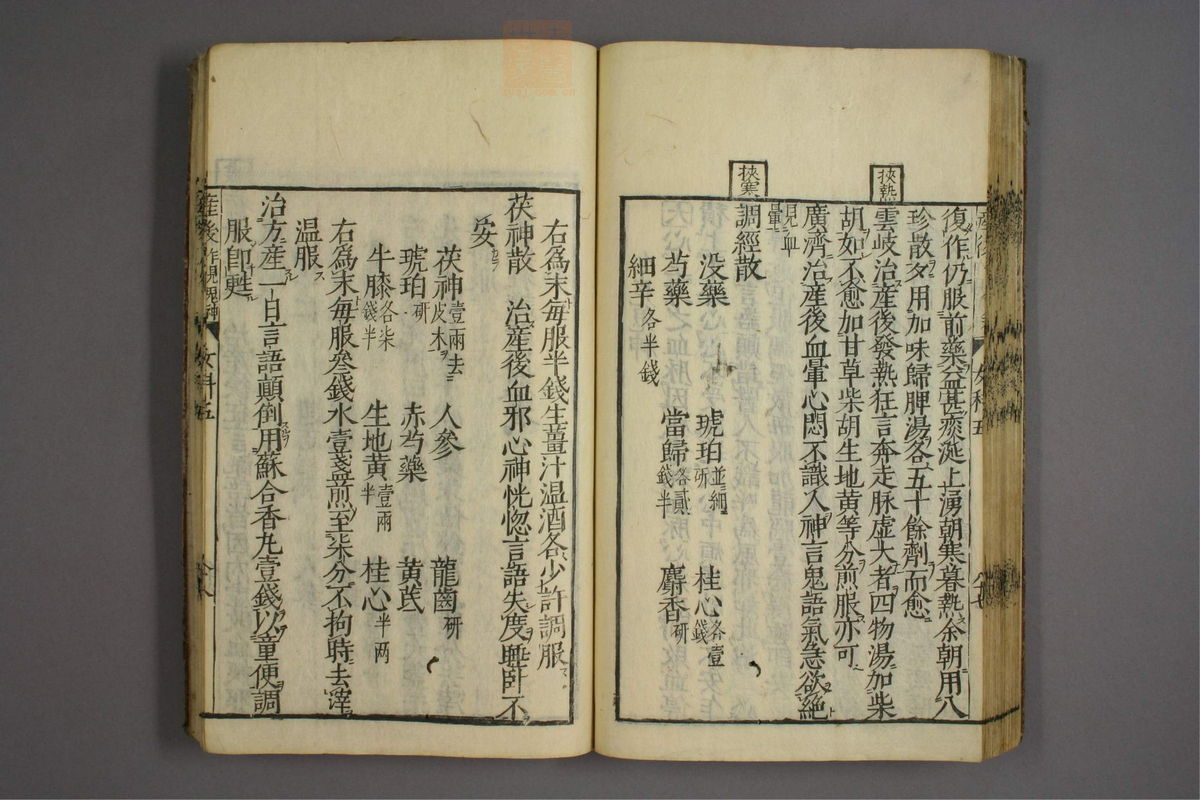 復作仍服前藥益甚痰涎上湧朝寒暮熱余朝用八
珍散夕用加味歸脾湯各五十餘劑而愈
挾熱
雲岐治産後發熱狂言奔走脉虚大者四物湯加柴
胡如不愈加甘草柴胡生地黄等分煎服亦可
廣濟治産後血暈心悶不識人神言鬼語氣急欲絶
見血暈
挾寒
調經散
没藥 琥珀並細研 桂心各壹錢
芍藥 當歸各貳錢半 麝香研
細辛各半錢
右爲末毎服半錢生薑汁温酒各少許調服
茯神散 治産後血邪心神恍惚言語失度睡卧不
安
茯神壹兩去皮木 人參 龍齒研
琥珀研 赤芍藥 黄芪
牛膝各柒錢半 生地黄壹兩半 桂心半两
右爲末毎服叄錢水壹盞煎至柒分不拘時去滓
温服
治方産一日言語顛倒用蘇合香丸壹錢以童便調
服卽甦
産後 女科五